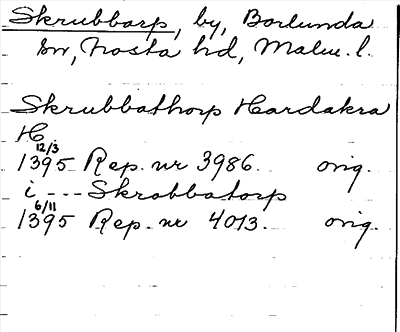 Skrubbarp, by, Borlunda
sn, Frosta hd, Malm. l.
Skrubbathorp Hardakra
H
12/3
1395 Rep. nr 3986. orig.
i --- Skrobbatorp
6/11
1395 Rep. nr 4013. orig.